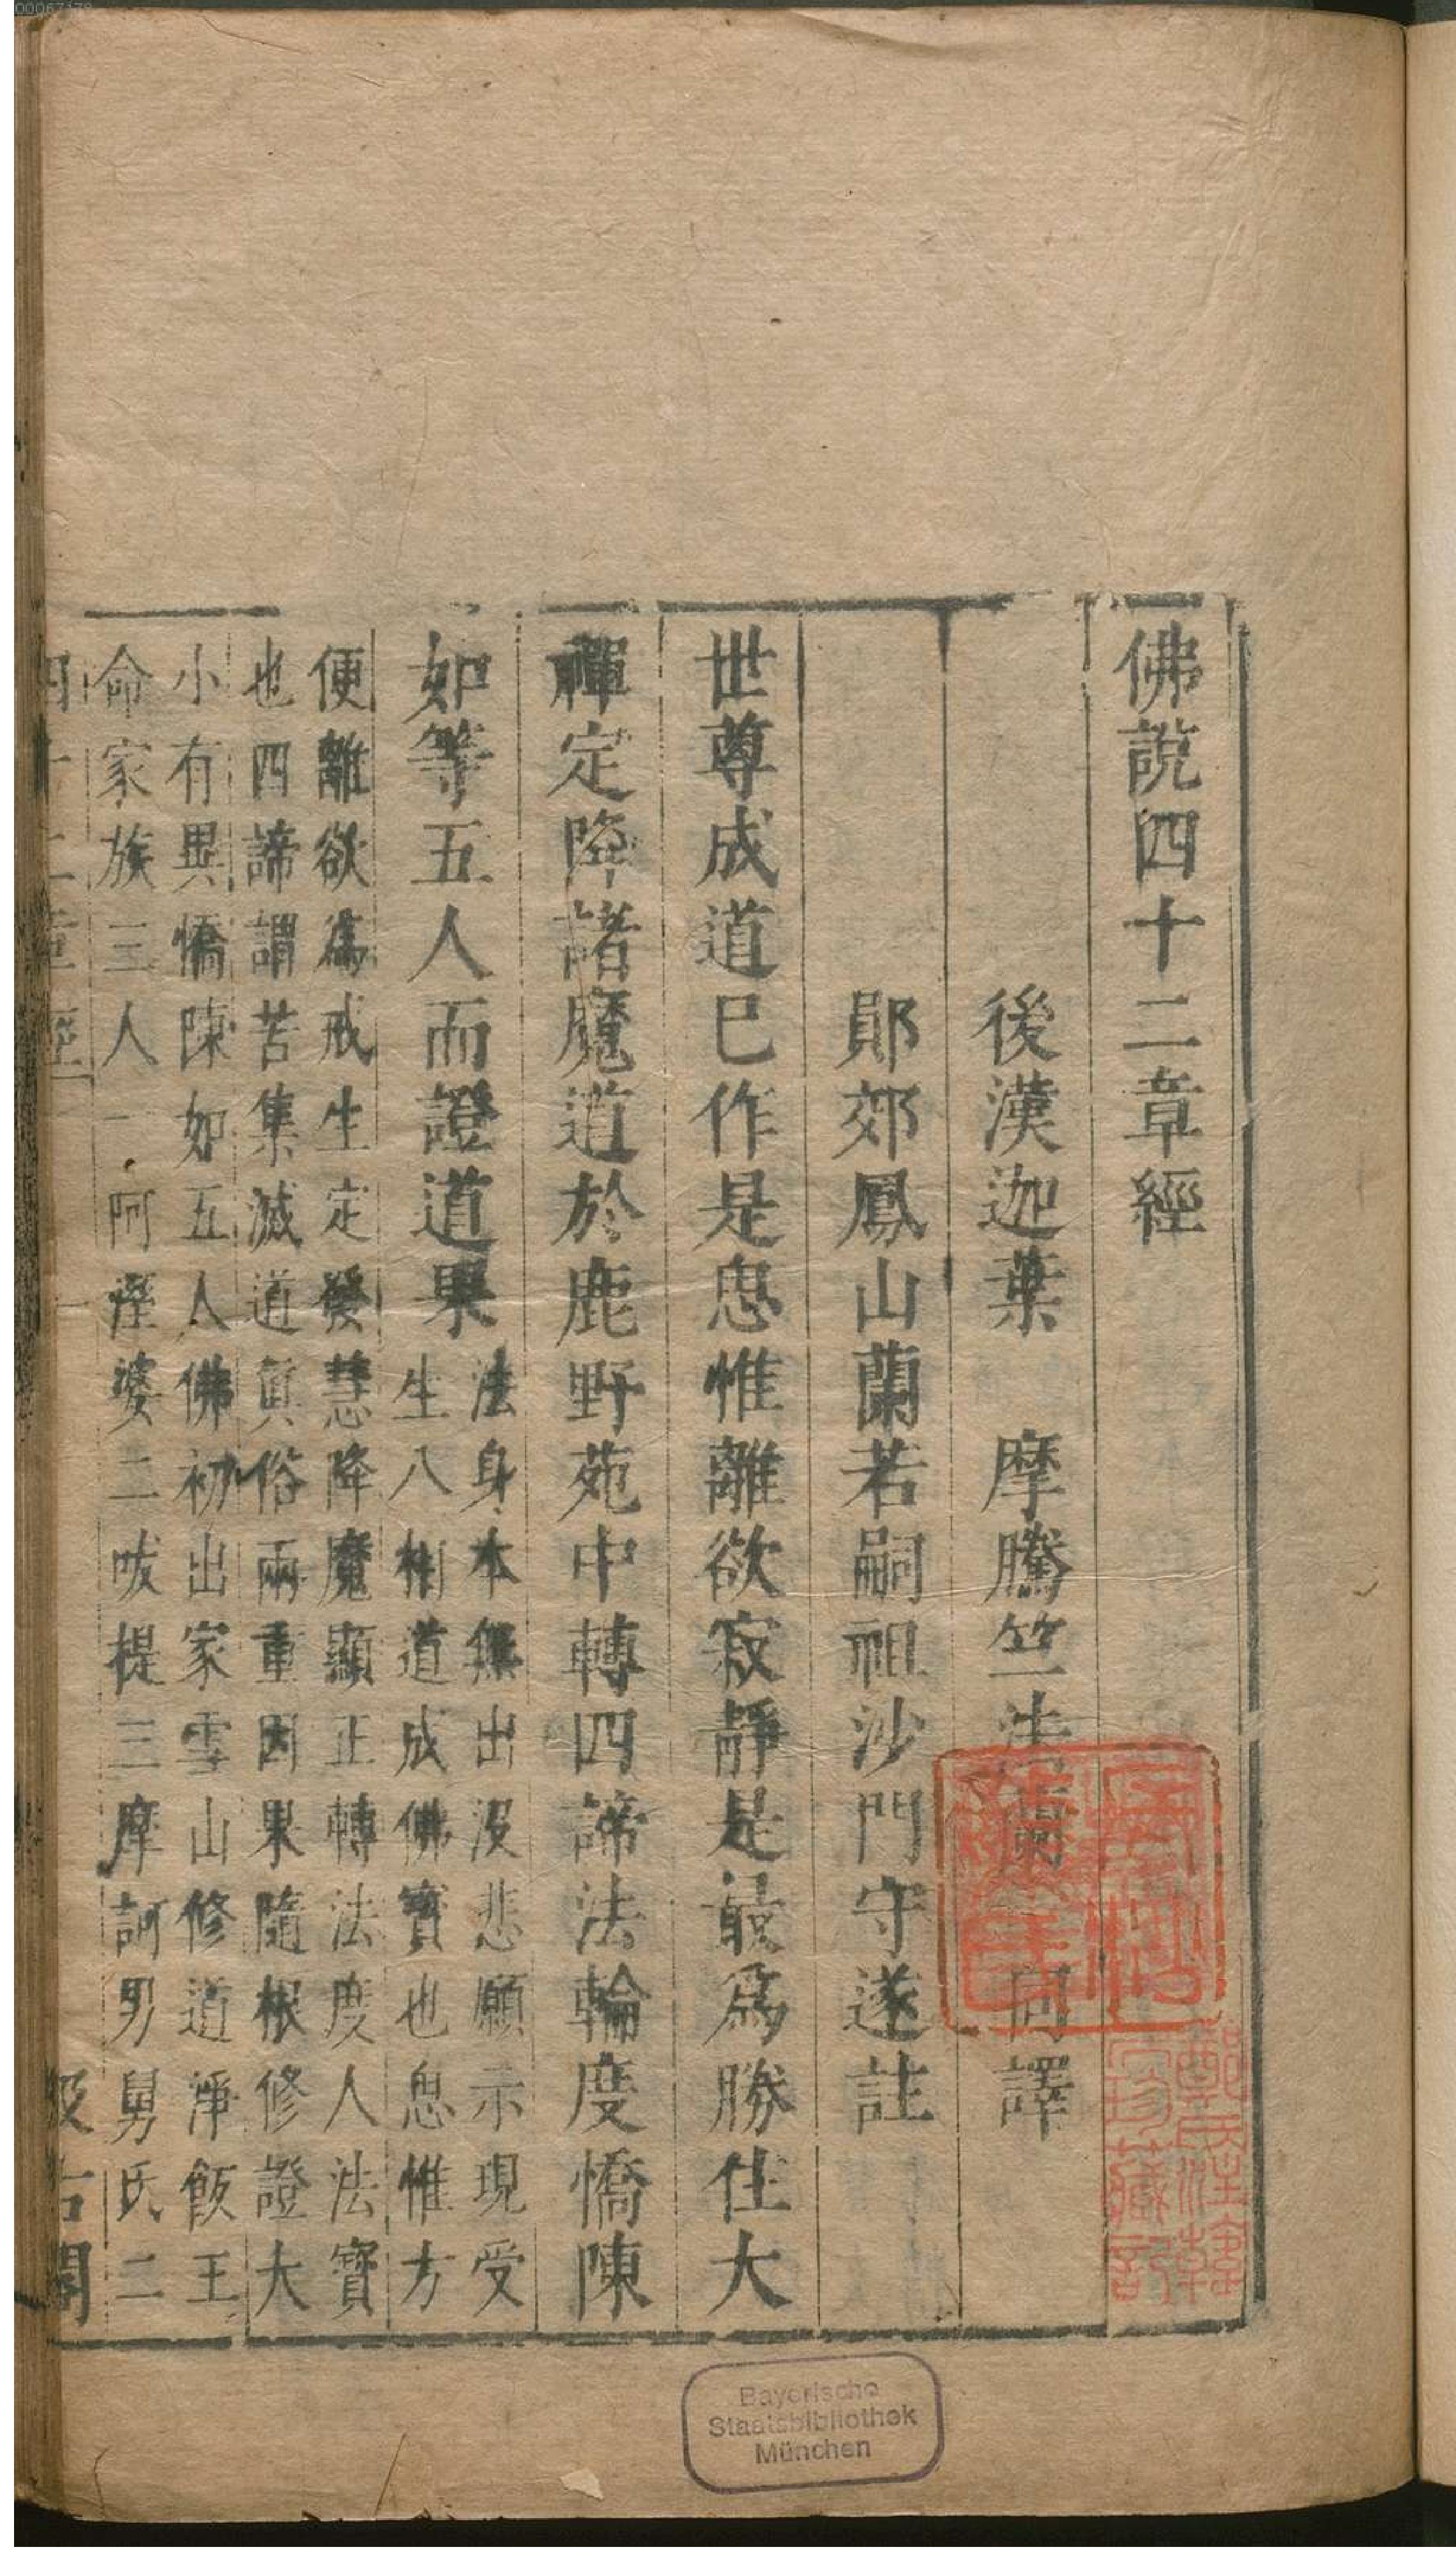 佛說四十二章經
後漢迦葉 摩騰竺法蘭同譯
郧郊鳳山蘭若嗣祖沙門守遂註
世尊成道已作是思惟離欲寂靜是最爲勝住大
禪定降諸魔道於鹿野苑中轉四諦法輪度憍陳
如等五人而證道果
法身本無出沒悲願示現受
生八相道成佛寳也思惟方
便離欲爲戒生定發慧降魔顯正轉法度人法寳
也四諦謂苦集滅道眞俗兩重因果隨根修證大
小有異憍陳如五人佛初出家雪山修道淨飯王
命家族三人一阿溼婆二㕹提三摩訶男舅氏二
四十二章經 一 汲古閣
Bayerische
Staatsbibliothek
München
00067178